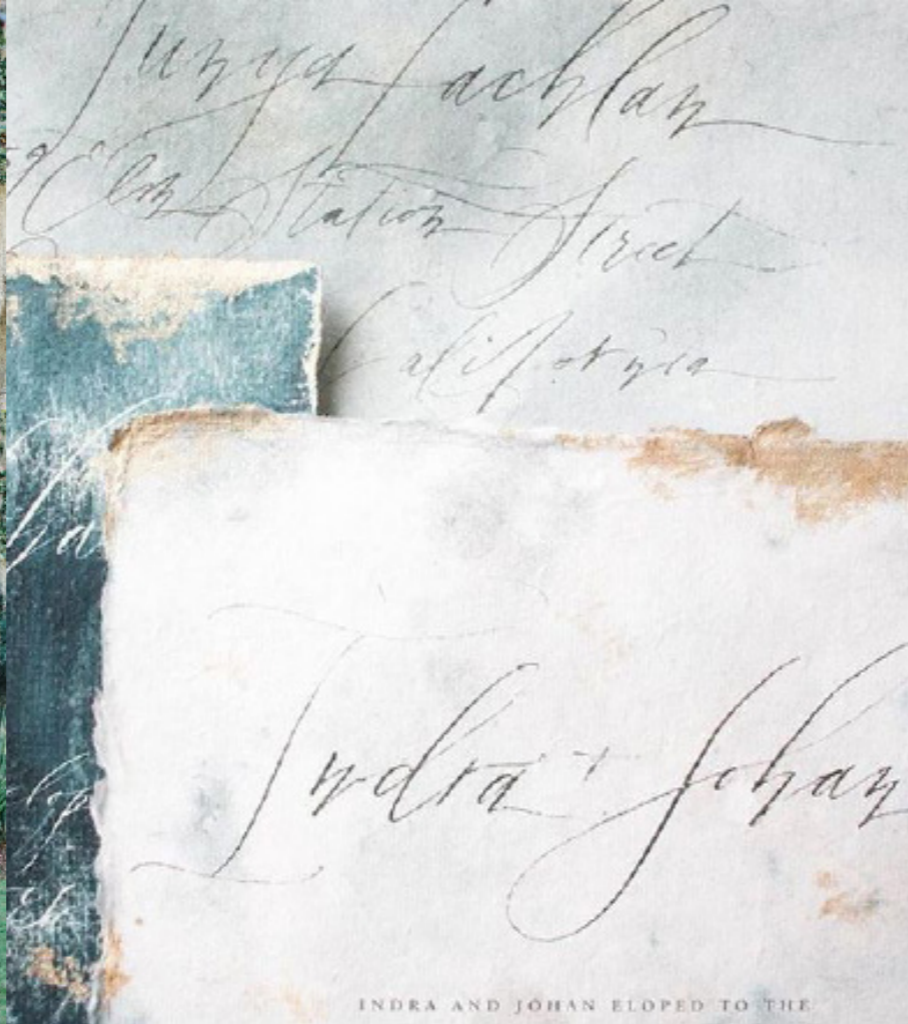 Lachlan
Elm Station Street
California
Indra + Johan
INDRA AND JOHAN ELOPED TO THE